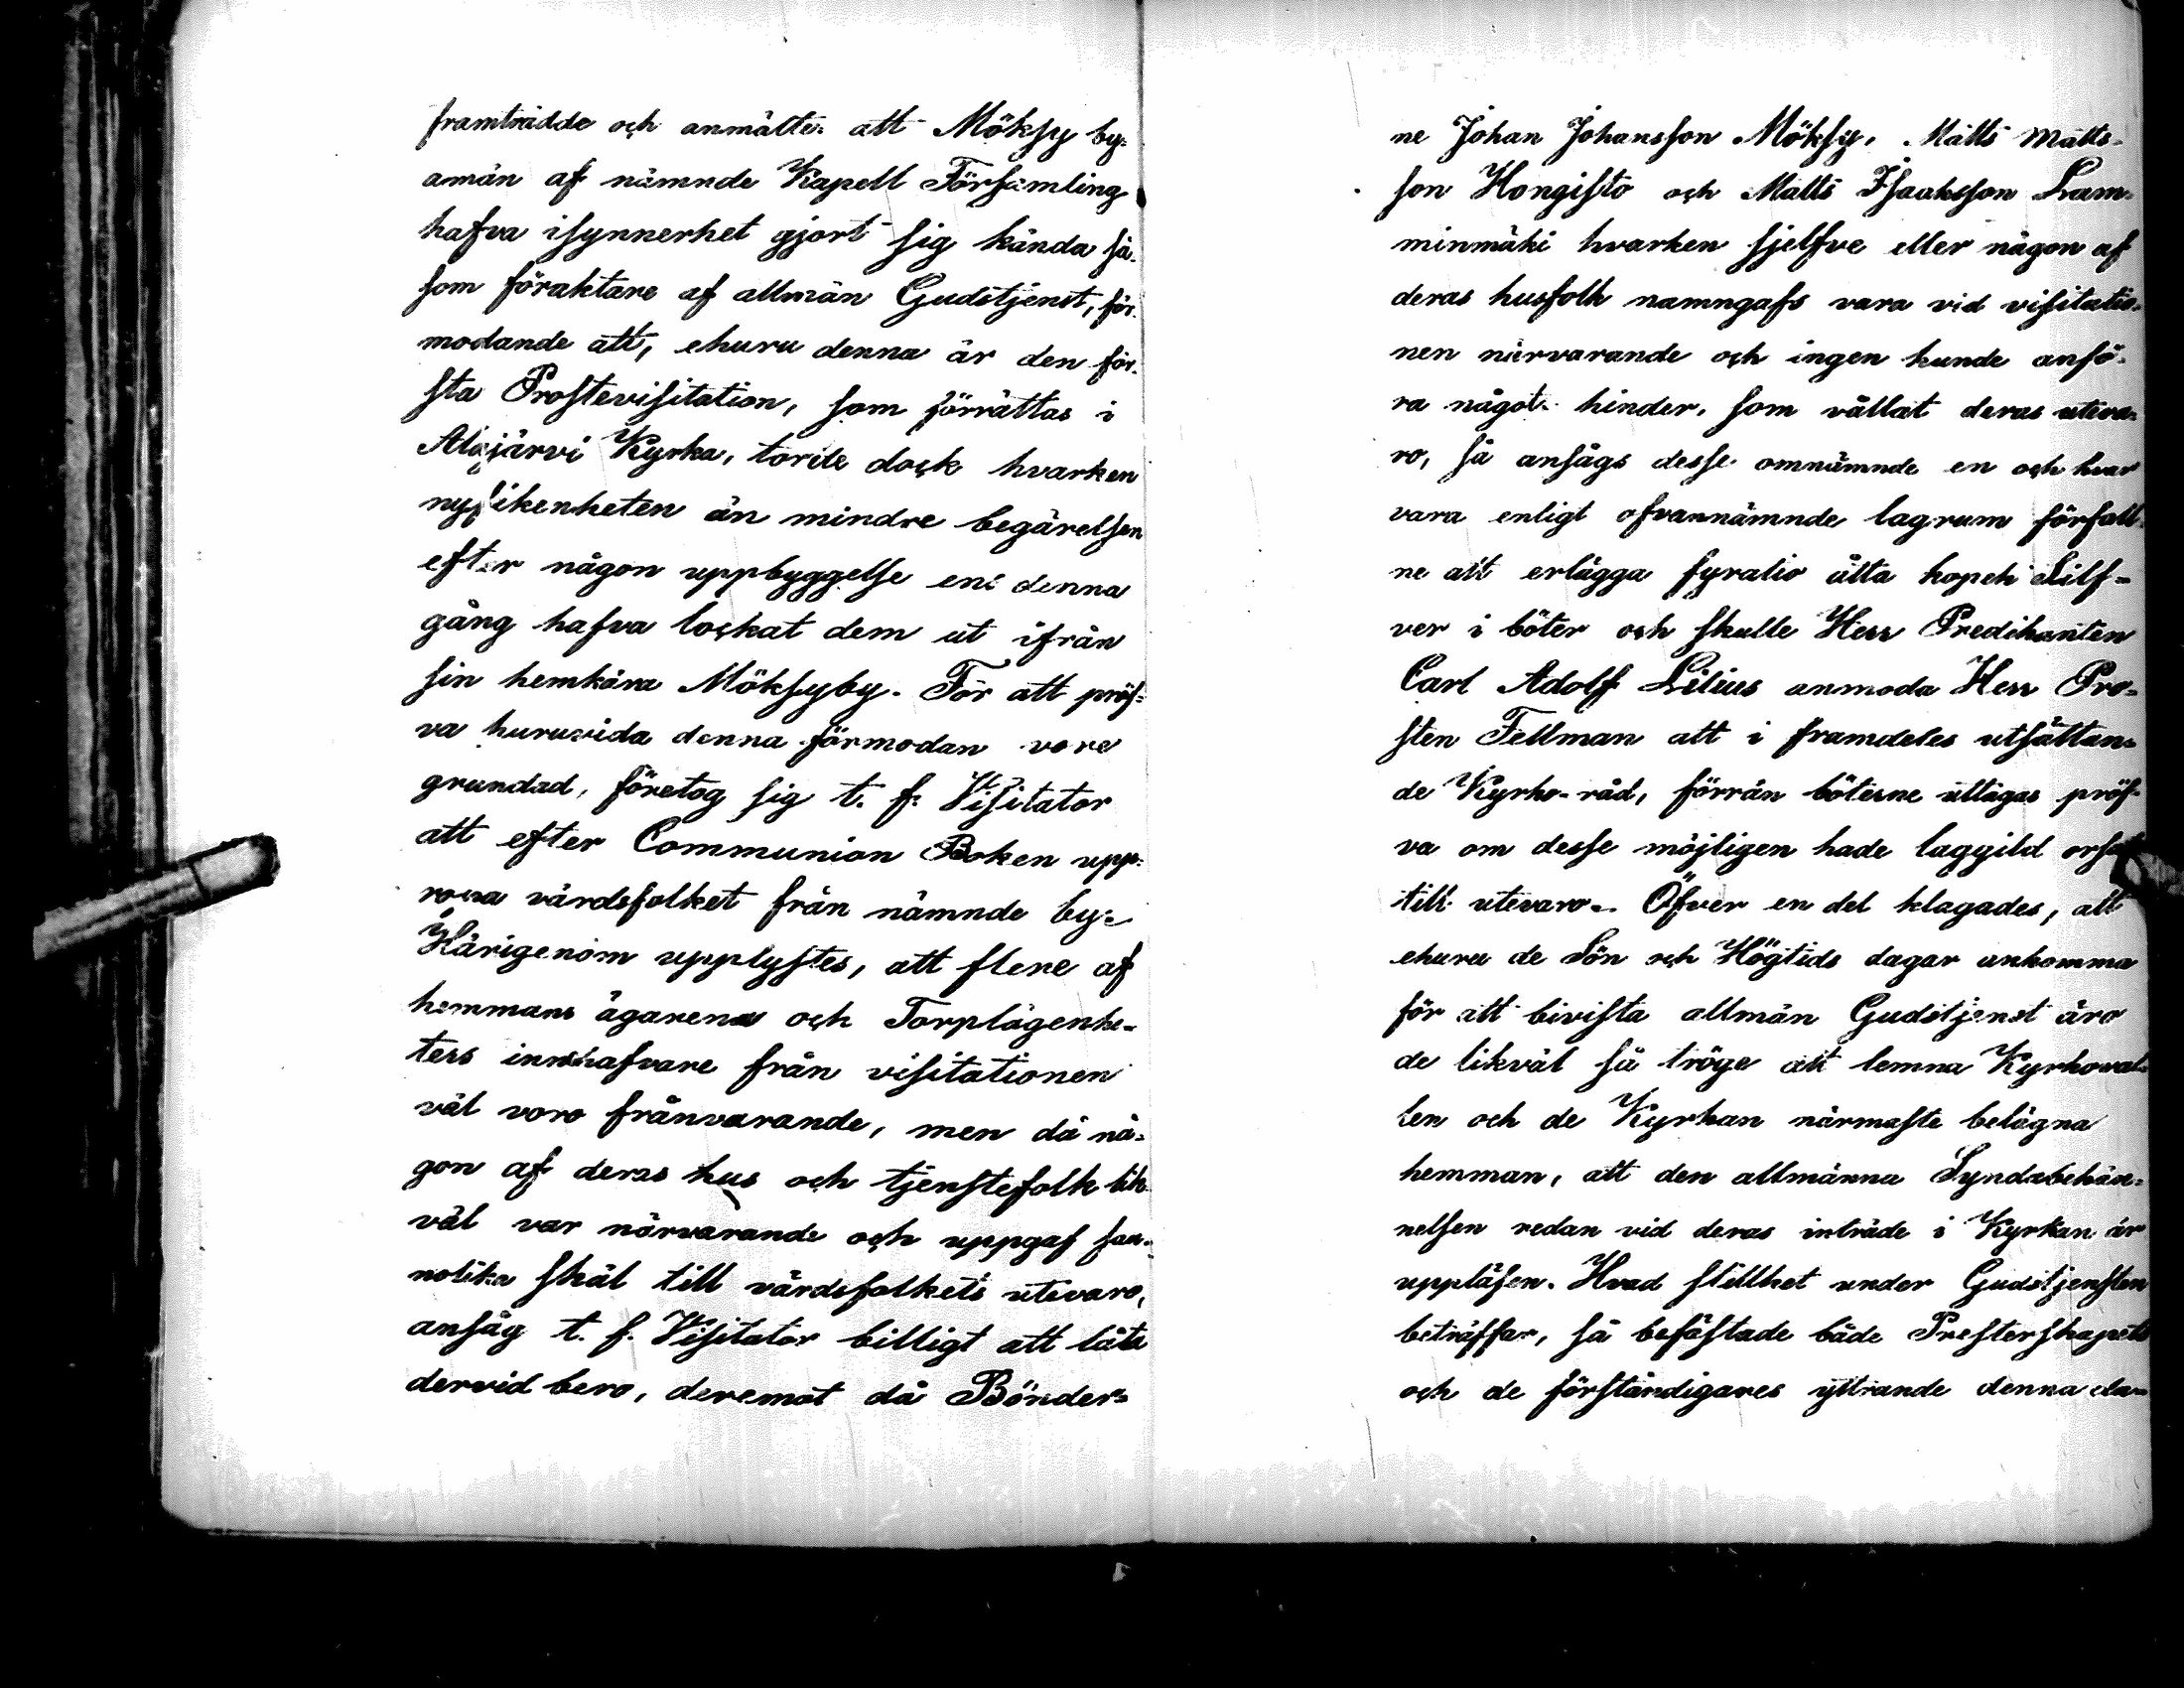 framträdde och anmälte att Möksy by-
amän af nämnde Kapell Församling
hafva isynnerhet gjort sig kända så-
som föraktare af allmän Gudstjenst, för-
modande att, ehuru denna är den för-
sta Prostevisitation, som förrättas i
Alajärvi Kyrka, torde dock hvarken
nyfikenheten än mindre begärelsen
efter någon uppbyggelse ens denna
gång hafva lockat dem ut ifrån
sin hemkära Möksyby. För att pröf-
va huruvida denna förmodan vore
grundad, företog sig t. f. Visitator
att efter Communion Boken upp-
ropa värdsfolket från nämnde by.
Härigenom upplystes, att flere af
hemmans ägarena och Torplägenhe-
ters innehafvare från visitationen
väl voro frånvarande, men då nå-
gon af deras hus och tjenstefolk lik-
väl var närvarande och uppgaf san-
nolika skäl till värdsfolkets utevaro,
ansåg t. f. Visitator billigt att låta
dervid bero, deremot då Bönder-
ne Johan Johansson Möksy, Matts Matts-
son Hongisto och Matts Isaaksson Lam-
minmäki hvarken sjelfve eller någon af
deras husfolk namngafs vara vid visitatio-
nen närvarande och ingen kunde anfö-
ra något hinder, som vållat deras uteva-
ro, så ansågs desse omnämnde en och hvar
vara enligt ofvannämnde lagrum förfall-
ne att erlägga fyratio åtta kopek Silf-
ver i böter och skulle Herr Predikanten
Carl Adolf Lilius anmoda Herr Pro-
sten Fellman att i framdeles utsättan-
de Kyrko-råd, förrän böterne uttagas pröf-
va om desse möjligen hade laggild orsak
till utevaro. Öfver en del klagades, att
ehuru de Sön och Högtids dagar ankomma
för att bivista allmän Gudstjenst äro
de likväl så tröge att lemna Kyrkoval-
len och de Kyrkan närmaste belägna
hemman, att den allmänna Syndabekän-
nelsen redan vid deras inträde i Kyrkan är
uppläsen. Hvad stillhet under Gudstjensten
beträffar, så befästade både Presterskapets
och de förståndigares yttrande denna der-